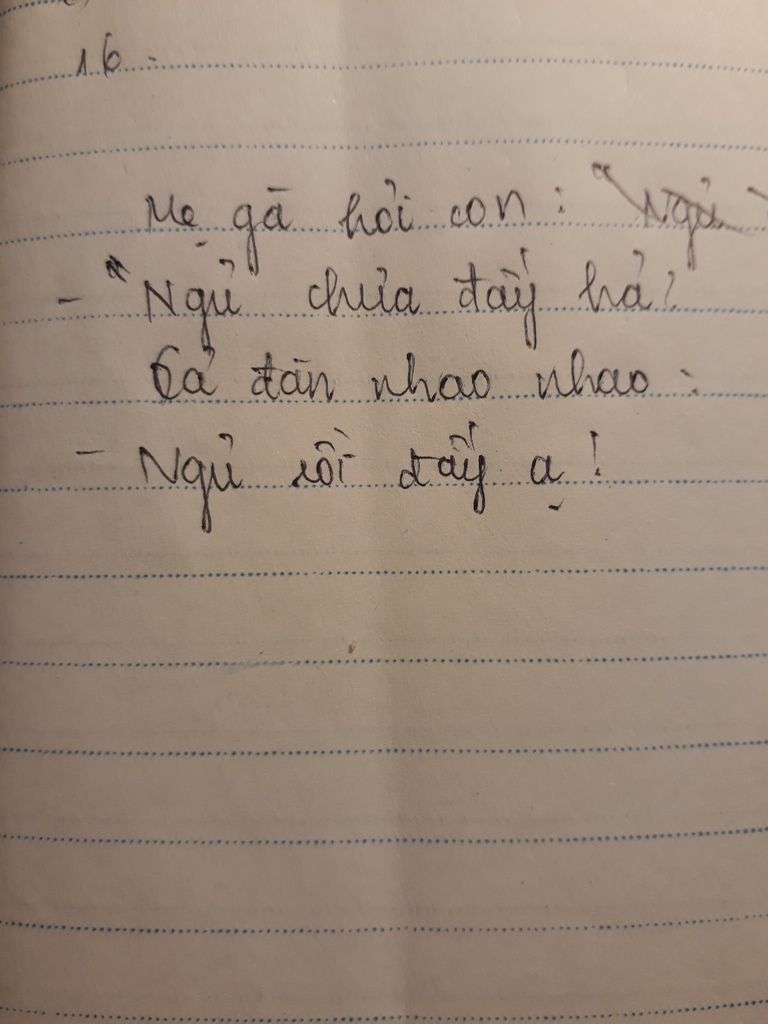 16.
Mẹ gà hỏi con : "Ngủ
- "Ngủ chưa đấy hả?
Cả đàn nhao nhao :
- Ngủ rồi đấy ạ!